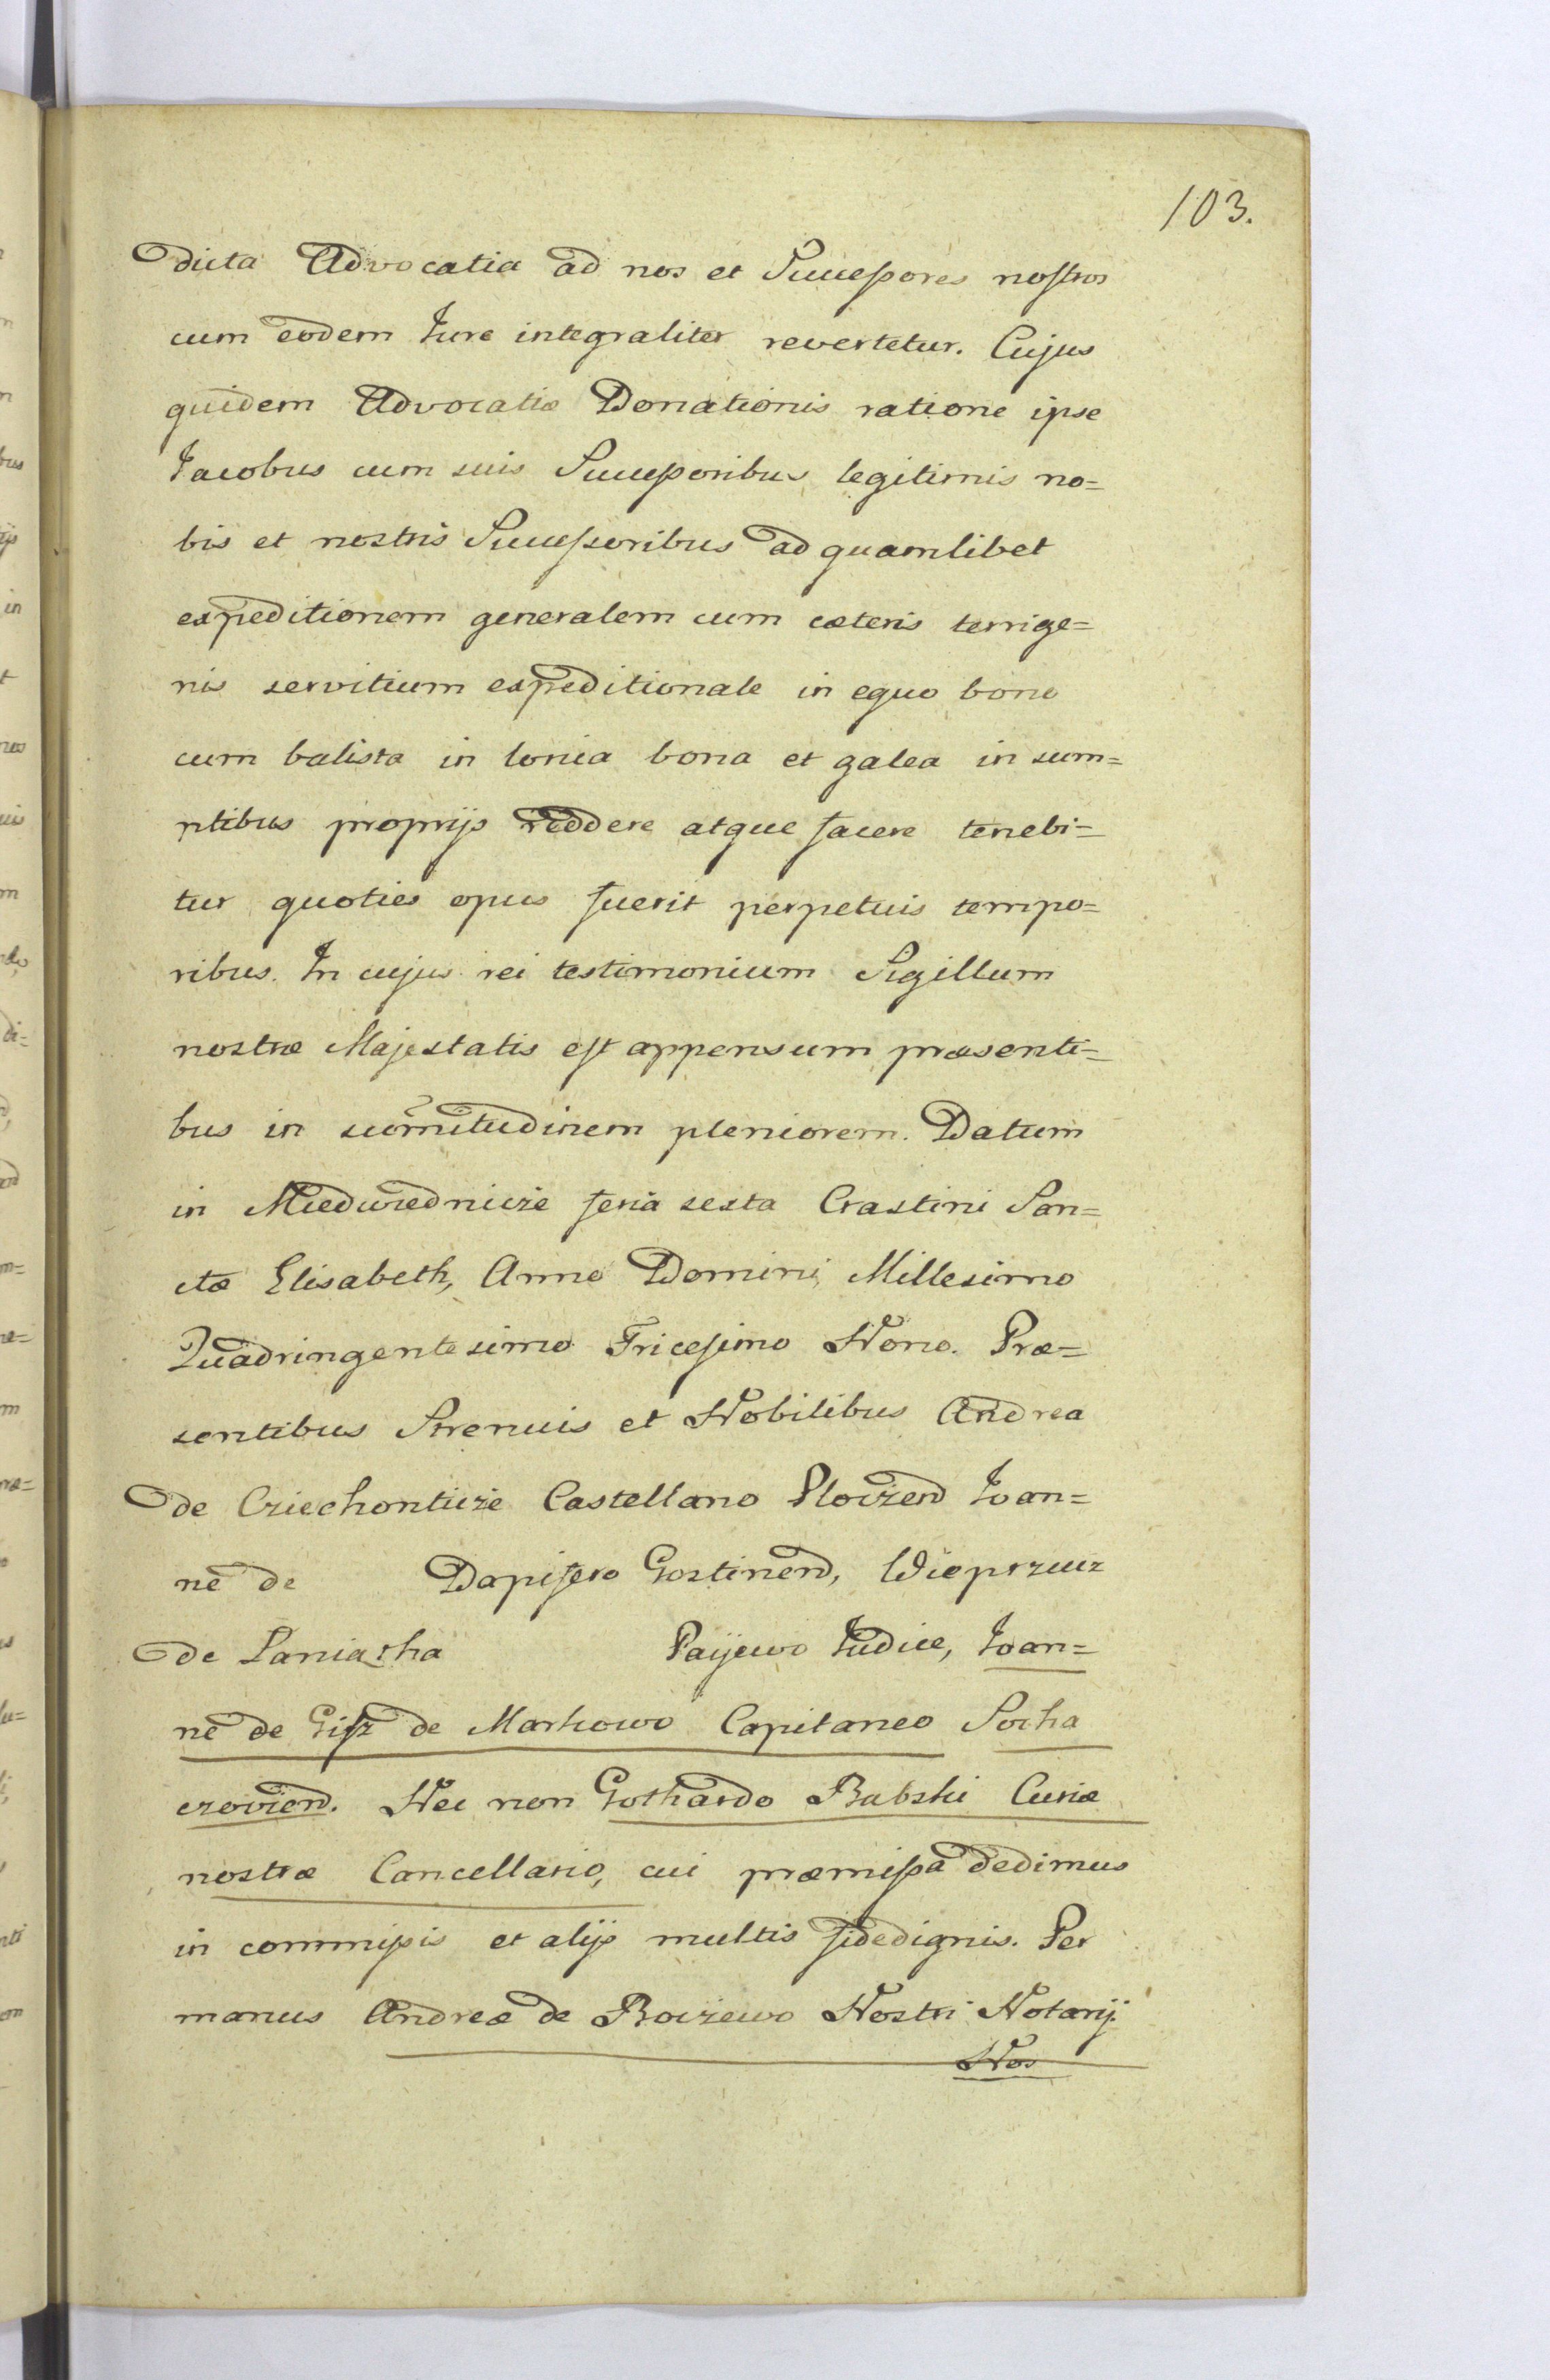 103.
dicta Advocatia ad nos et Successores nostros
cum eodem Jure integraliter revertetur. Cujus
quidem Advocatiæ Donationis ratione ipse
Jacobus cum suis Successoribus legitimis no=
bis et nostris Successoribus ad quamlibet
expeditionem generalem cum cæteris terrige=
nis servitium expeditionale in equo bono
cum balista in lorica bona et galea in sum=
ptibus proprijs reddere atque facere tenebi=
tur quoties opus fuerit perpetuis tempo=
ribus. In cujus rei testimonium Sigillum
nostræ Majestatis est appensum præsenti=
bus in certitudinem pleniorem. Datum
in Miedwiednicze feria sexta Crastini San=
ctæ Elisabeth, Anno Domini Millesimo
Quadringentesimo Tricesimo Nono. Præ=
sentibus Strenuis et Nobilibus Andrea
de Cziechonticze Castellano Ploczen Joan=
ne de Dapifero Gostinen, Wieprzecz
de Paijewo Judice, Joan=
ne de Gisz de Markowo Capitaneo Socha
czovien. Nec non Gothardo Babski Curiæ
nostræ Cancellario, cui præmissa dedimus
in commissis et alijs multis fidedignis. Per
manus Andreæ de Boczewo Nostri Notarij.
Nos